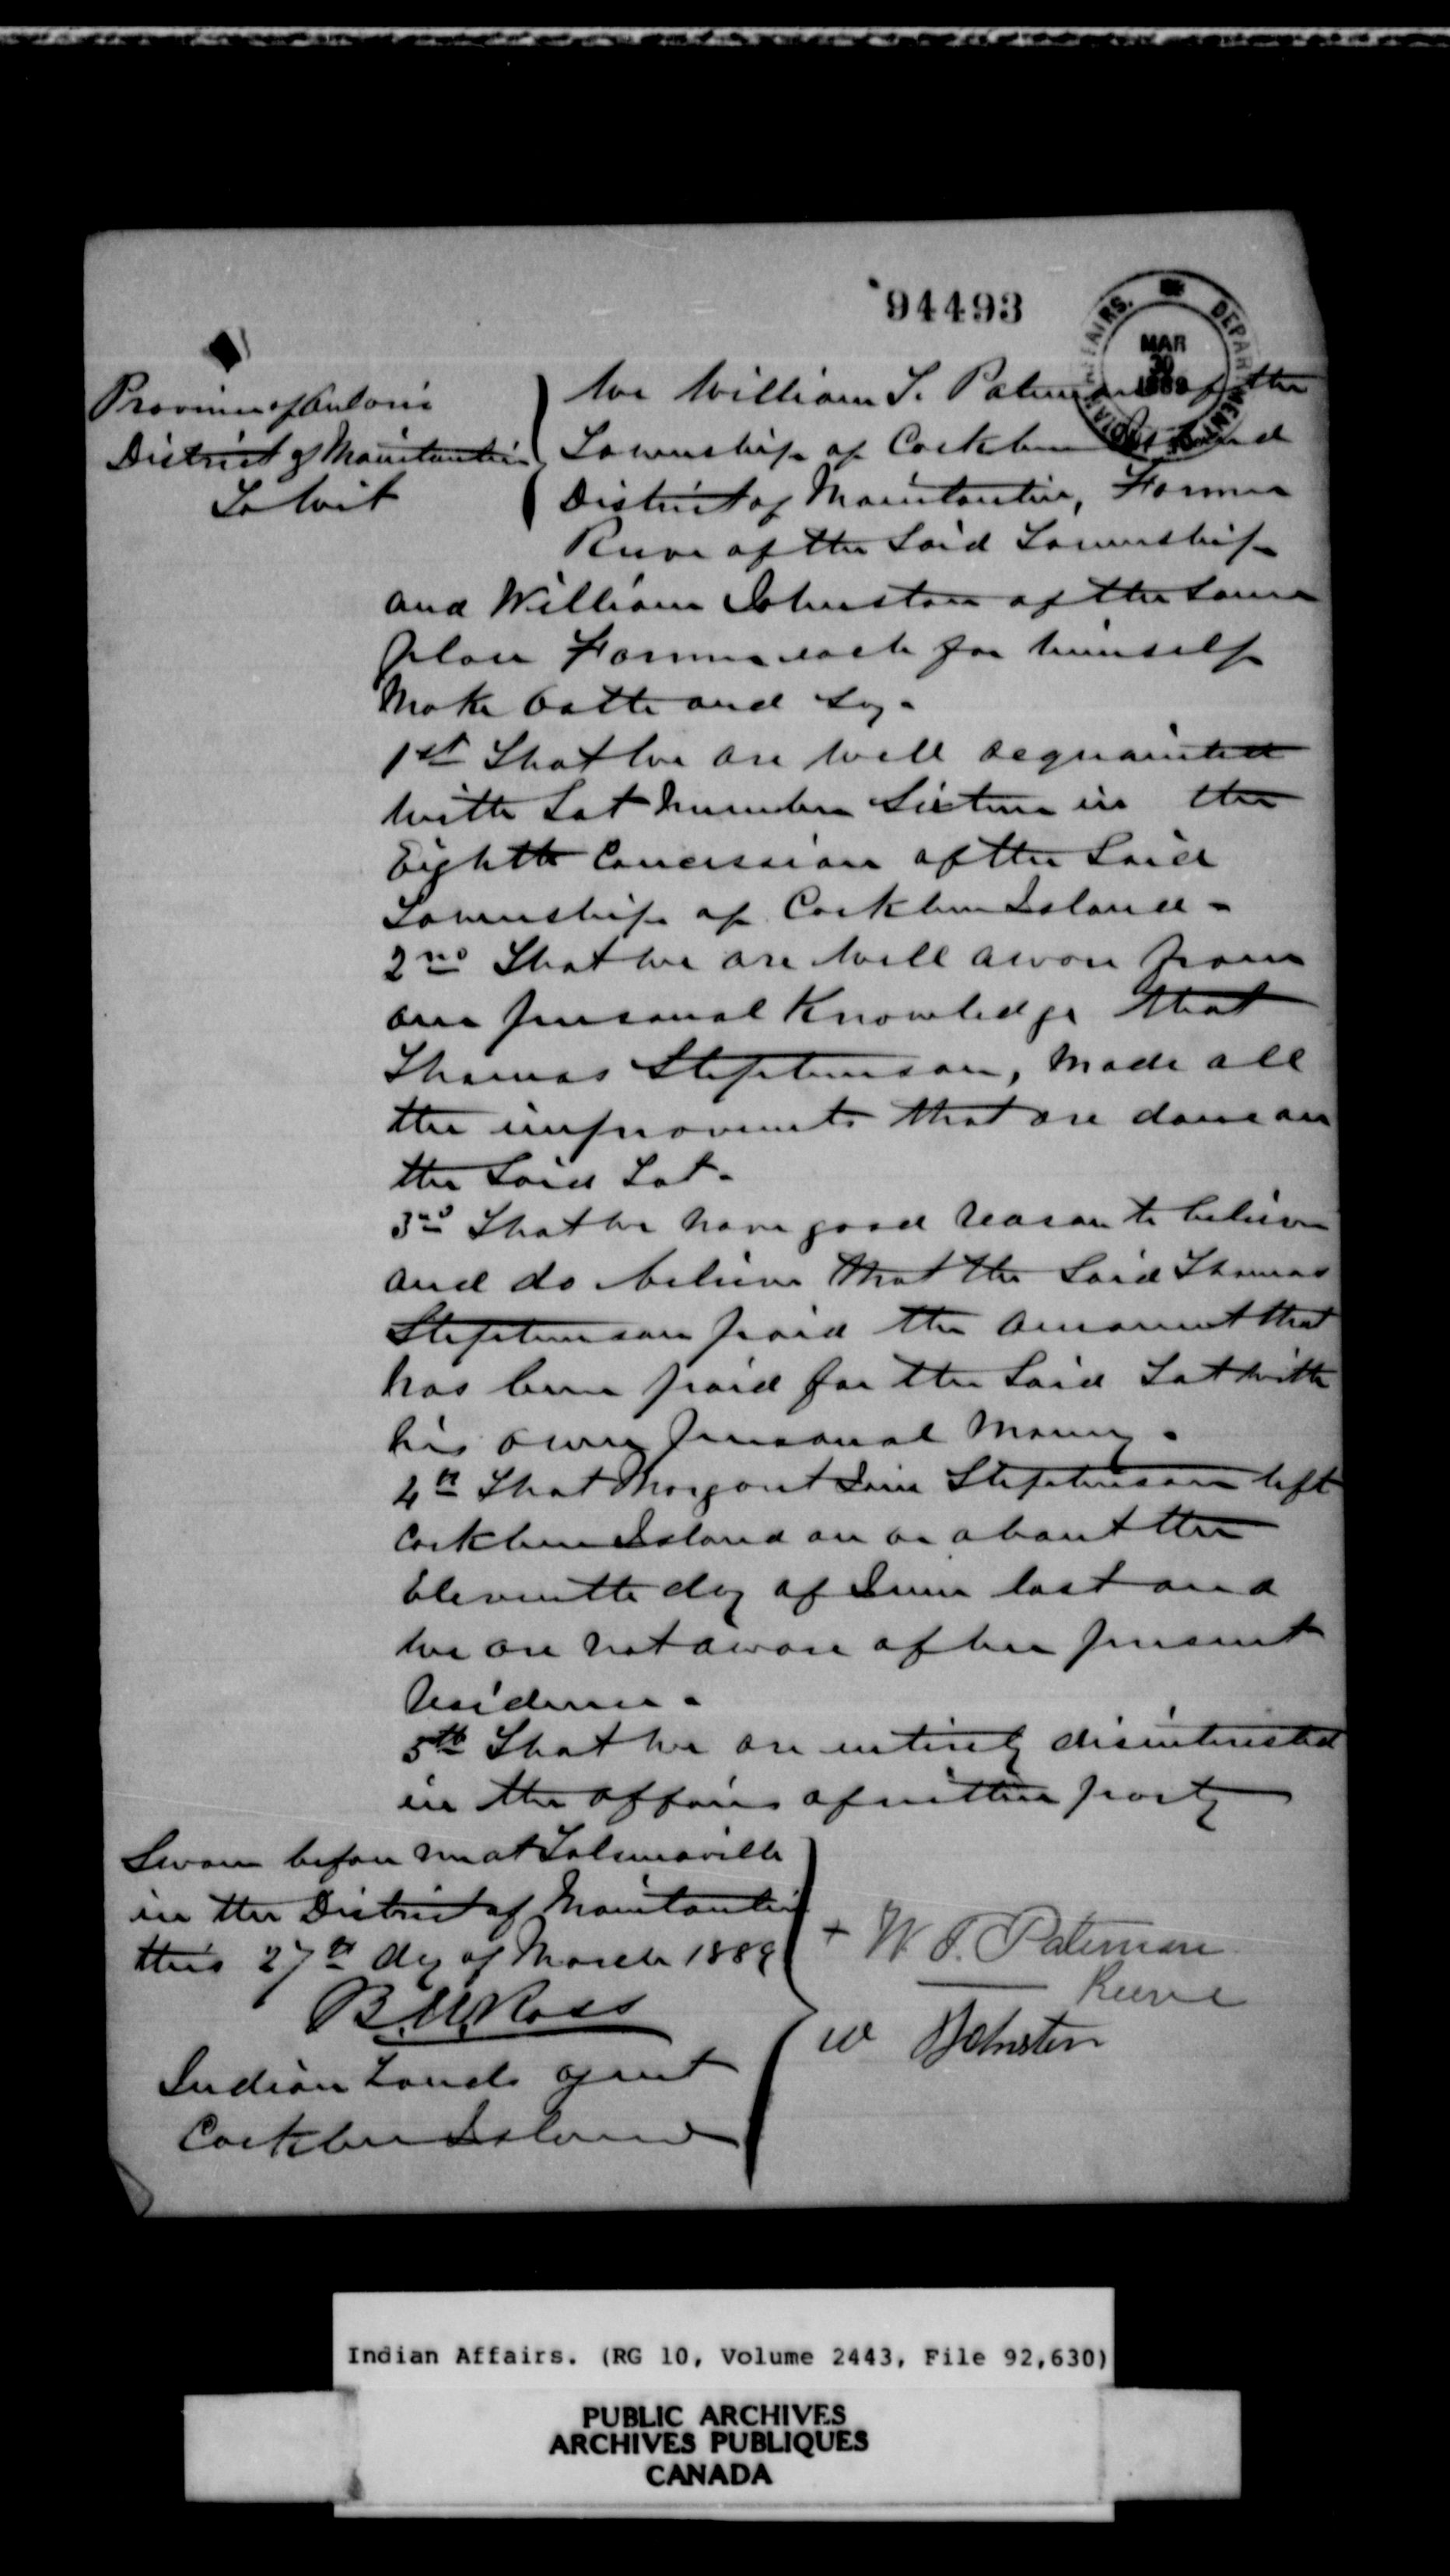 94493
DEPARTMENT INDIAN AFFAIRS.
MAR
30
1889
Province of Ontario
District of Manitoulin
To Wit
We William T. Pateman of the
Township of Cockburn Island
District of Manitoulin, Farmer
Reeve of the Said Township
and William Johnston of the Same
place Farmer each for himself
Make Oath and Say -
1st That we are well acquainted
with Lot Number Sixteen in the
Eighth Concession of the Said
Township of Cockburn Island -
2nd That we are well aware from
our personal Knowledge that
Thomas Stephenson, Made all
the improvements that are done on
the Said Lot -
3rd That we have good reason to believe
and do believe that the Said Thomas
Stephenson paid the amount that
has been paid for the Said Lot with
his own personal Money -
4th That Margaret Jane Stephenson left
Cockburn Island on or about the
Eleventh day of June last and
we are not aware of her present
residence -
5th That we are entirely disinterested
in the affairs of either party
Sworn before me at Tolsmaville
in the District of Manitoulin
this 27th day of March 1889
B. W. Ross
Indian Lands agent
Cockburn Island
+ W. T. Pateman
Reeve
W Johnston
Indian Affairs. (RG 10, Volume 2443, File 92,630)
PUBLIC ARCHIVES
ARCHIVES PUBLIQUES
CANADA